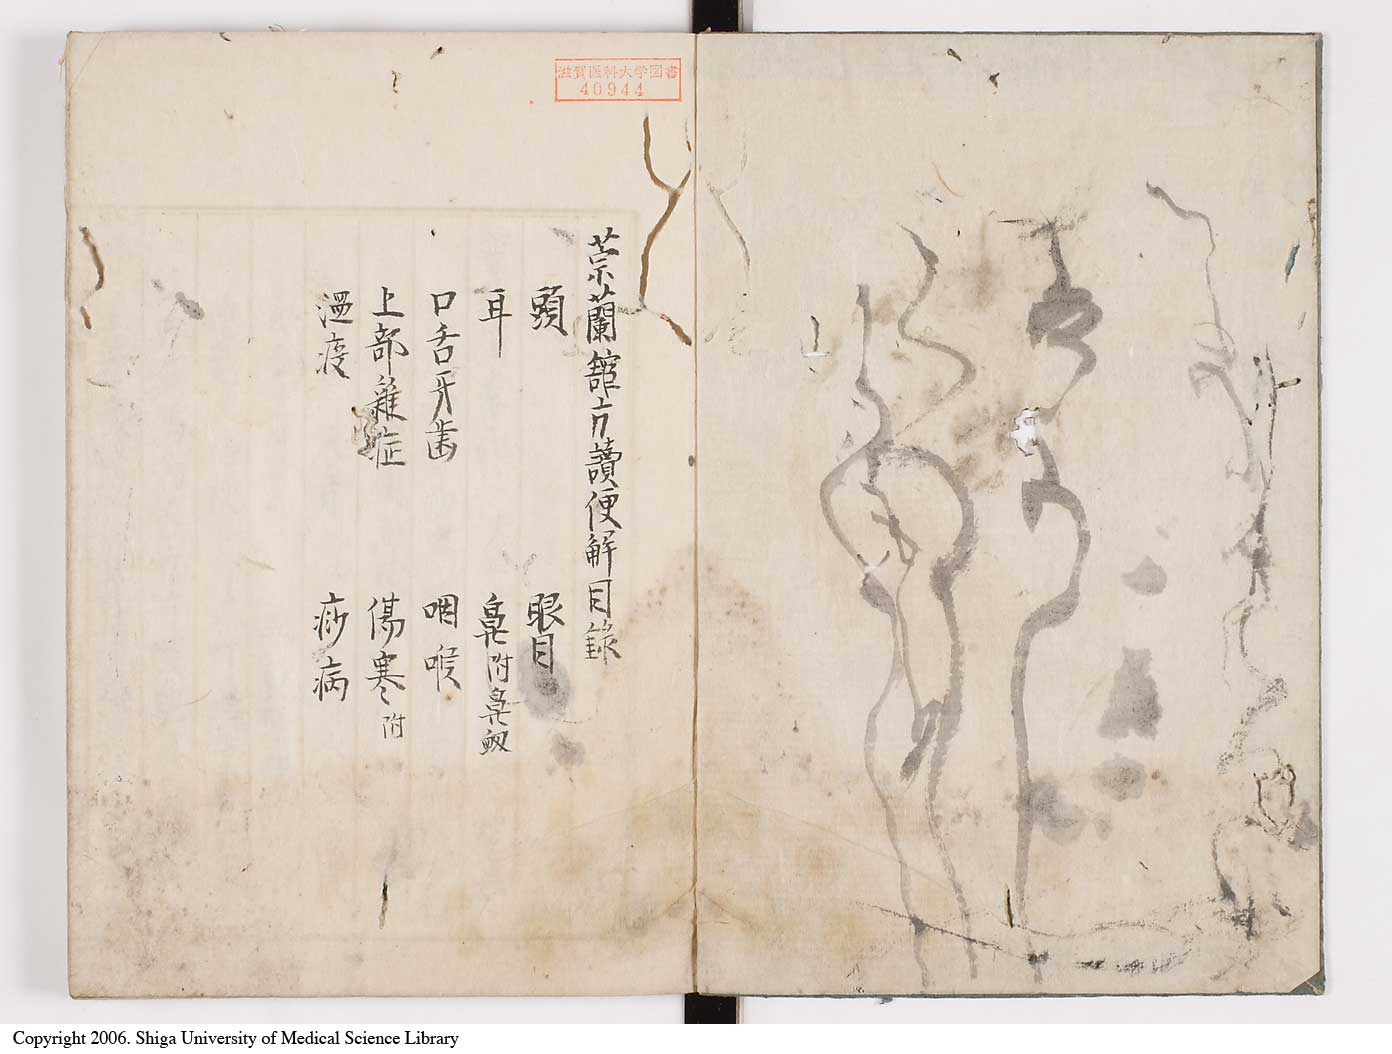 滋賀医科大学図書
40944
崇蘭舘方讀便解目錄
頭 眼目
耳 鼻附鼻衂
口舌牙歯 咽喉
上部雜症 傷寒附
温疫 痧病
Copyright 2006. Shiga University of Medical Science Library